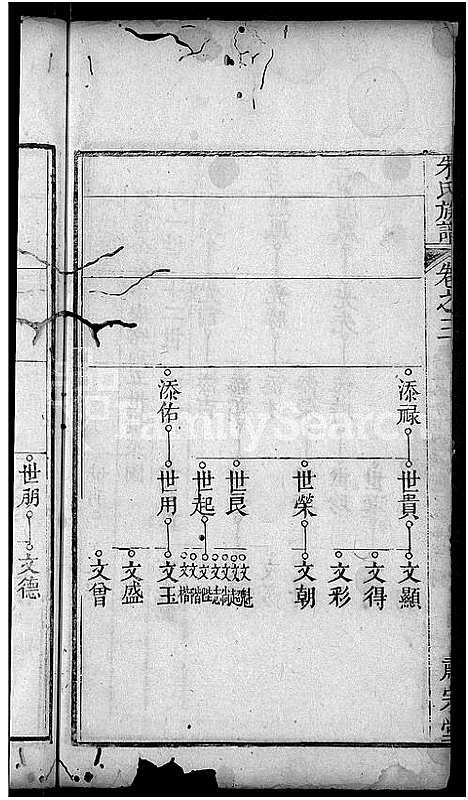 朱氏族譜
卷之三
添祿
添佑
世貴
世榮
世良
世起
世用
文顯
文得
文彩
文朝
文魁
文
文
文志
文
文階
文楷
文玉
文盛
文曾
世朋
文德
FamilySearch